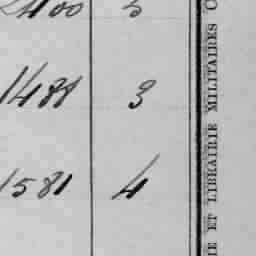 2400 5
1488 3
1581 4
IE ET LIBRAIRIE MILITAIRES